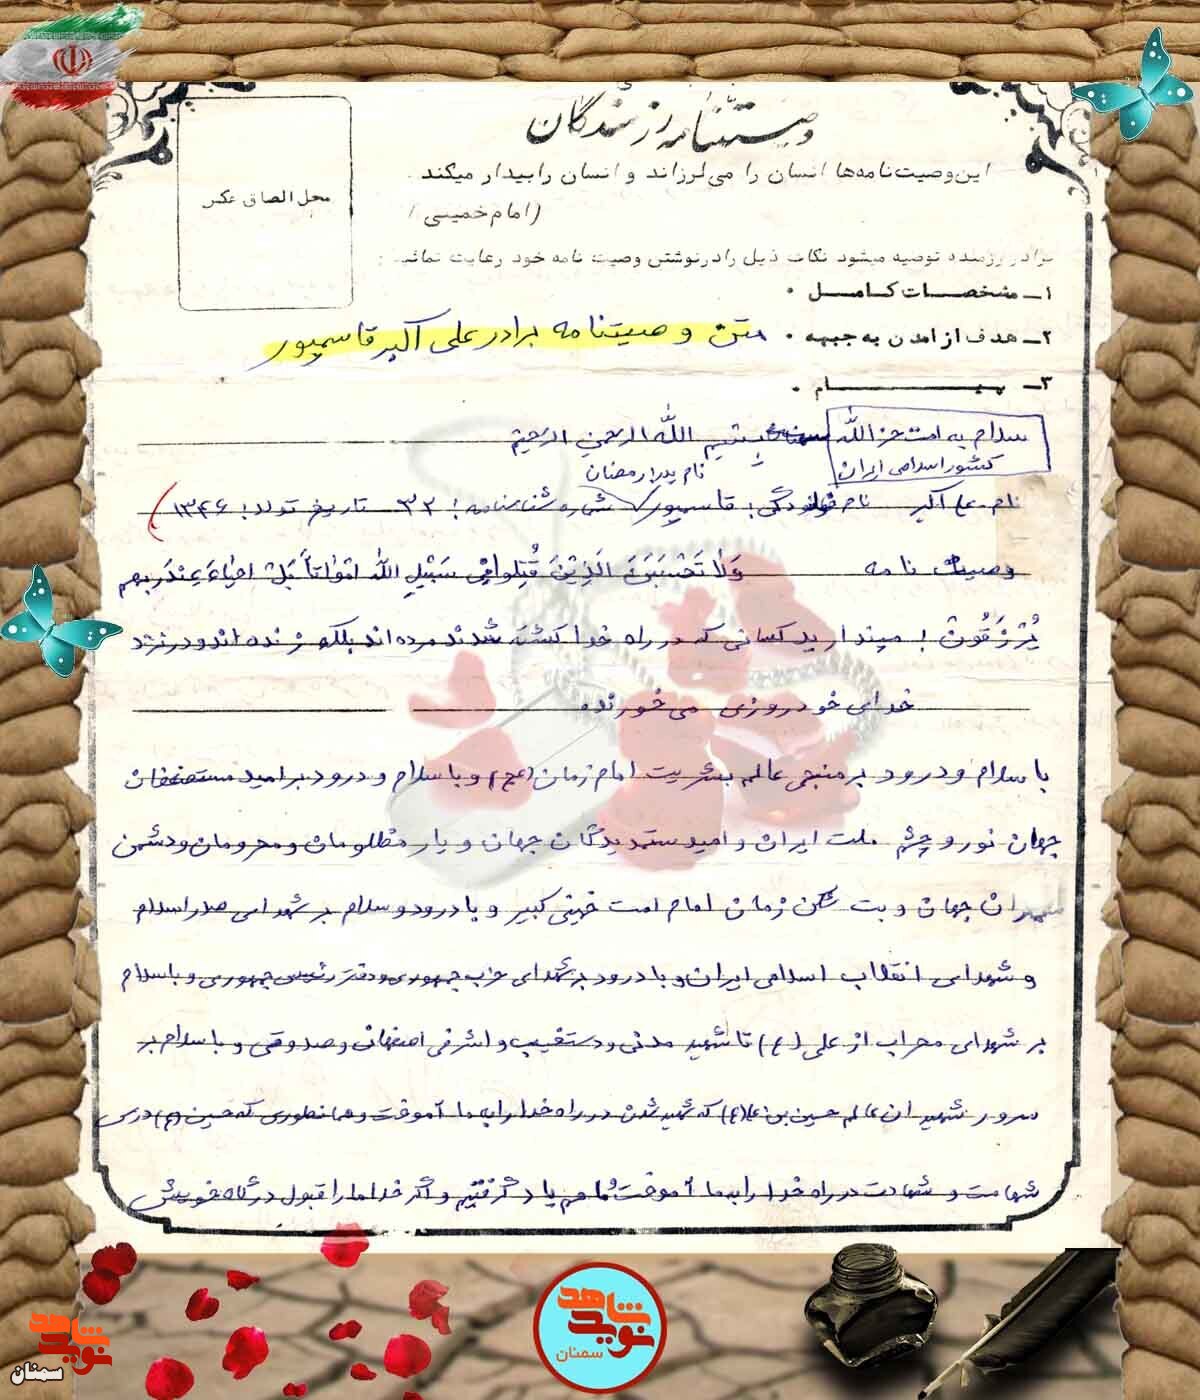 وصیتنامه رزمندگان
این وصیت‌نامه‌ها انسان را می‌لرزاند و انسان را بیدار میکند.
(امام خمینی)
محل الصاق عکس
برادر رزمنده توصیه میشود نکات ذیل را در نوشتن وصیت نامه خود رعایت نمائید:
۱ـ مشخصات کامل.
۲ـ هدف از آمدن به جبهه.
متن وصیتنامه برادر علی اکبر قاسمپور
۳ـ پیام.
سلام به امت حزالله
کشور اسلامی ایران
بسم الله الرحمن الرحیم
نام پدر رمضان
نام علی اکبر نام خانوادگی: قاسمپور شماره شناسنامه: ۳۲ تاریخ تولد: ۱۳۴۶
وصیت نامه وَلا تَحْسَبَنَ الَذِیْنَ قُتِلوا فِی سَبْیلِ الله امْواتاً بَلْ احیاءَ عِنْدَ ربهم
یُرْزَقُونَ ! مپندارید کسانی که در راه خدا کشته شدند مرده‌اند بلکه زنده‌اند و در نزد
خدای خود روزی می‌خورنده
با سلام و درود بر منجی عالم بشریت امام زمان (عج) و با سلام و درود بر امید مستضعفان
جهان نور و چشم ملت ایران و امید ستمدیدگان جهان و یار مظلومان و محرومان و دشمن
جهان و بت شکن زمان امام امت خمینی کبیر و با درود و سلام بر شهدای صدر اسلام
و شهدای انقلاب اسلامی ایران و با درود بر شهدای حزب جمهوری و دفتر رئیسی جمهوری و با سلام
بر شهدای محراب از علی (ع) تا شهید مدنی و دستغیب و اشرفی اصفهانی و صدوقی و با سلام بر
سرور شهیدان عالم حسین بن علی (ع) که شهید شدن در راه خدا را به ما آموخت و همانطوری که حسین (ع) درس
شهامت و شهادت در راه خدا را به ما آموخت ما هم یاد گرفتیم و اگر خدا ما را قبول درگاه خویش
نوید شاهد
سمنان
نوید شاهد
سمنان